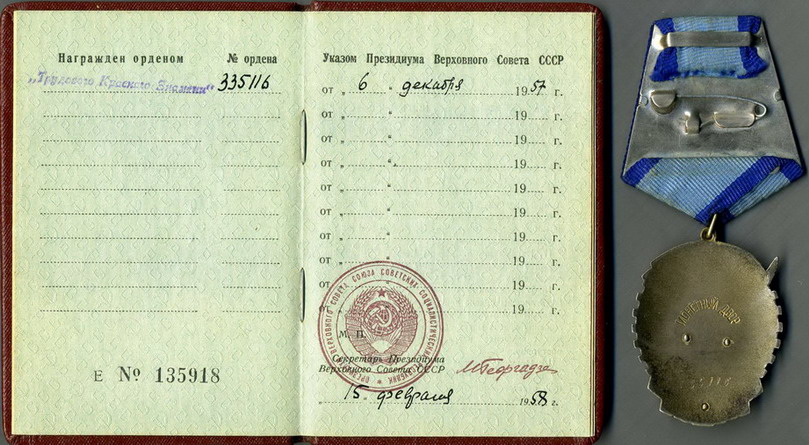 Награжден орденом № ордена
„Трудового Красного Знамени“ 335116
Е № 135918
Указом Президиума Верховного Совета СССР
от „ 6 “ декабря 1957 г.
от „ “ 19 г.
от „ “ 19 г.
от „ “ 19 г.
от „ “ 19 г.
от „ “ 19 г.
от „ “ 19 г.
от „ “ 19 г.
от „ “ 19 г.
от „ “ 19 г.
М. П.
Секретарь Президиума
Верховного Совета СССР МГеоргадзе
„ 15 “ февраля 1958 г.
МОНЕТНЫЙ ДВОР